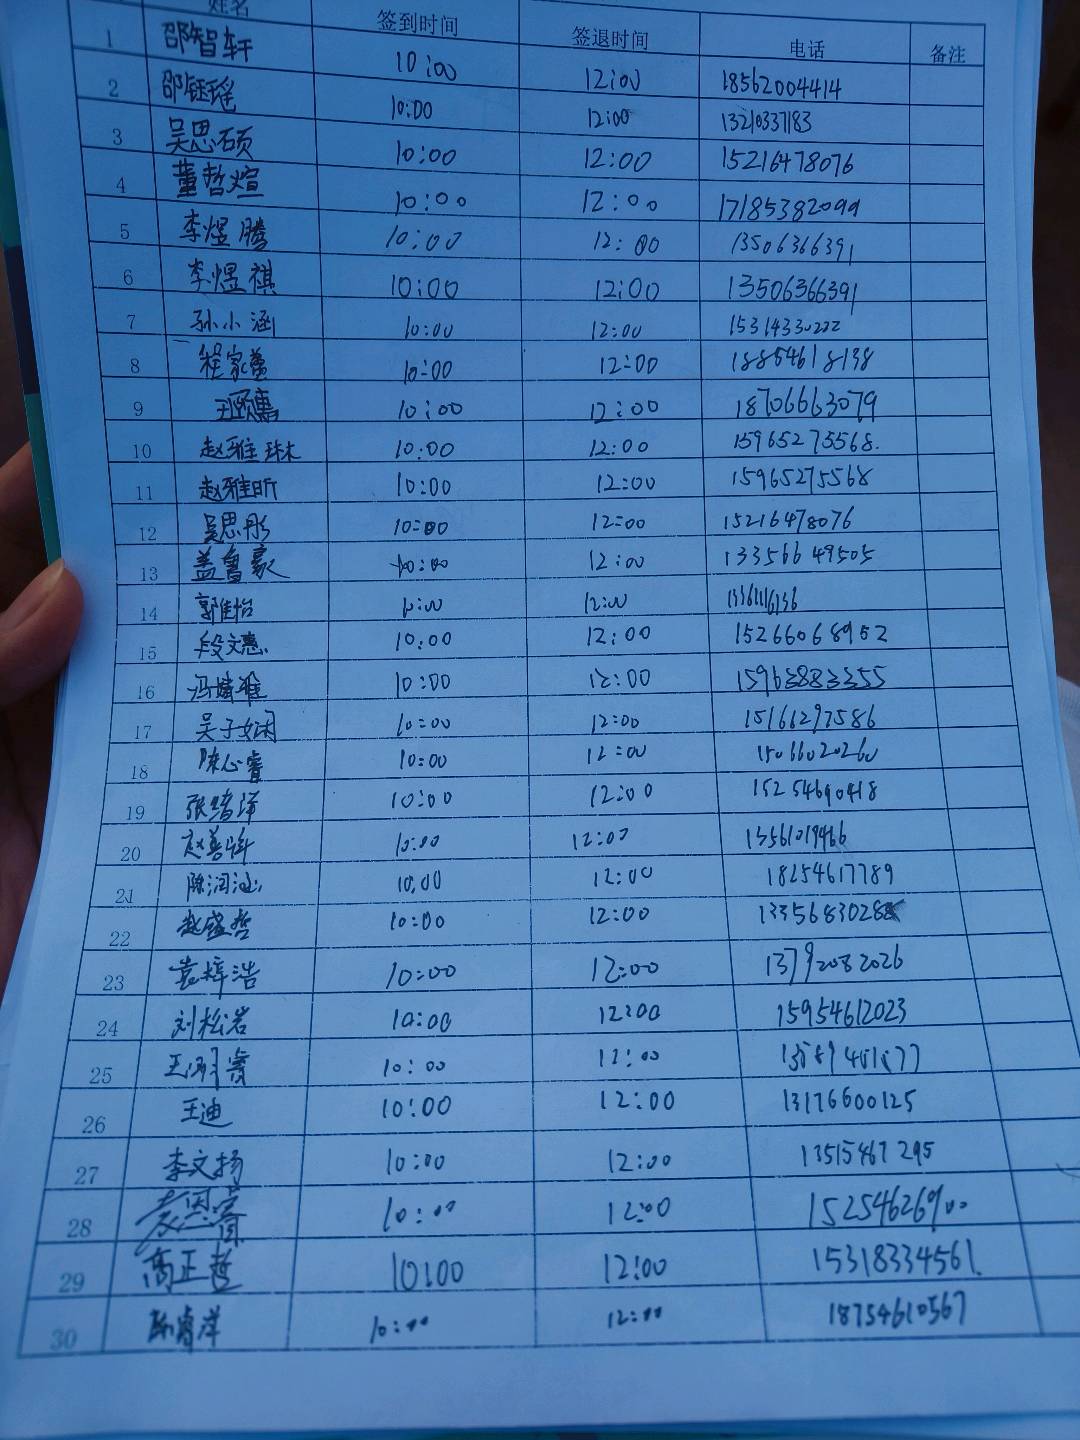 姓名 签到时间 签退时间 电话 备注
1 邵智轩 10:00 12:00 18562004414
2 邵钰瑶 10:00 12:00 13210337183
3 吴思硕 10:00 12:00 15216478076
4 董哲煊 10:00 12:00 17185382099
5 李煜腾 10:00 12:00 13506366391
6 李煜祺 10:00 12:00 13506366391
7 孙小涵 10:00 12:00 15314330222
8 程家萱 10:00 12:00 18854618138
9 10:00 12:00 18706663079
10 赵雅琳 10:00 12:00 15965275568.
11 赵雅昕 10:00 12:00 15965275568
12 吴思彤 10:00 12:00 15216478076
13 盖鲁豪 10:00 12:00 13356649505
14 郭佳怡 10:00 12:00
15 段文惠 10:00 12:00 15266068952
16 冯婧雅 10:00 12:00
17 吴子娴 10:00 12:00 15166297586
18 陈心睿 10:00 12:00 15066020260
19 张绪泽 10:00 12:00 15254690418
20 10:00 12:00 13561019466
21 陈润涵 10:00 12:00 18254617789
22 赵盛哲 10:00 12:00
23 袁梓浩 10:00 12:00 13792082026
24 刘松岩 10:00 12:00 15954612023
25 10:00 12:00
26 王迪 10:00 12:00 13176600125
27 李文扬 10:00 12:00 13515467295
28 10:00 12:00 15254626900
29 高正哲 10:00 12:00 15318334561.
30 10:00 12:00 18754610567